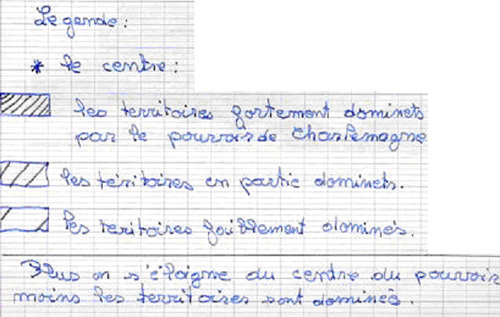 Legende :
* le centre :
les territoires fortement dominets
par le pouvoir de Charlemagne
les teritoires en partie dominets.
les teritoires faiblement dominés.
Plus on s'éloigne du centre du pouvoir
moins les territoires sont dominés.